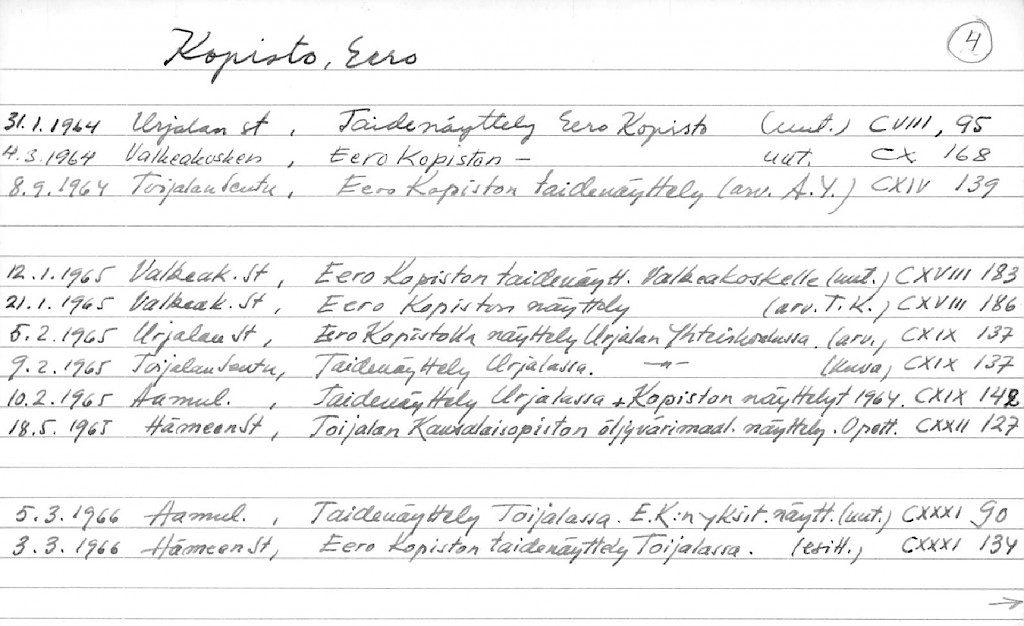 Kopisto, Eero 4
31.1.1964 Urjalan st , Taidenäyttely Eero Kopisto (uut.) CVIII, 95
4.3.1964 Valkeakosken , Eero Kopiston — uut. CX 168
8.9.1964 Toijalan Seutu, Eero Kopiston taidenäyttely (arv. A.Y.) CXIV 139
12.1.1965 Valkeak. St , Eero Kopiston taidenäytt. Valkeakoskelle (uut.) CXVIII 183
21.1.1965 Valkeak. St , Eero Kopiston näyttely (arv. T.K.) CXVIII 186
5.2.1965 Urjalan St , Eero Kopiston näyttely Urjalan Yhteiskoulussa. (arv.) CXIX 137
9.2.1965 Toijalan Seutu, Taidenäyttely Urjalassa. —"— (kuva) CXIX 137
10.2.1965 Aamul. , Taidenäyttely Urjalassa + Kopiston näyttelyt 1964. CXIX 142
18.5.1965 Hämeen St , Toijalan Kansalaisopiston öljyvärimaal. näyttely. Opett. CXXII 127
5.3.1966 Aamul. , Taidenäyttely Toijalassa. E.K:n yksit. näytt. (uut.) CXXXI 90
3.3.1966 Hämeen St, Eero Kopiston taidenäyttely Toijalassa. (esitt.) CXXXI 134
→